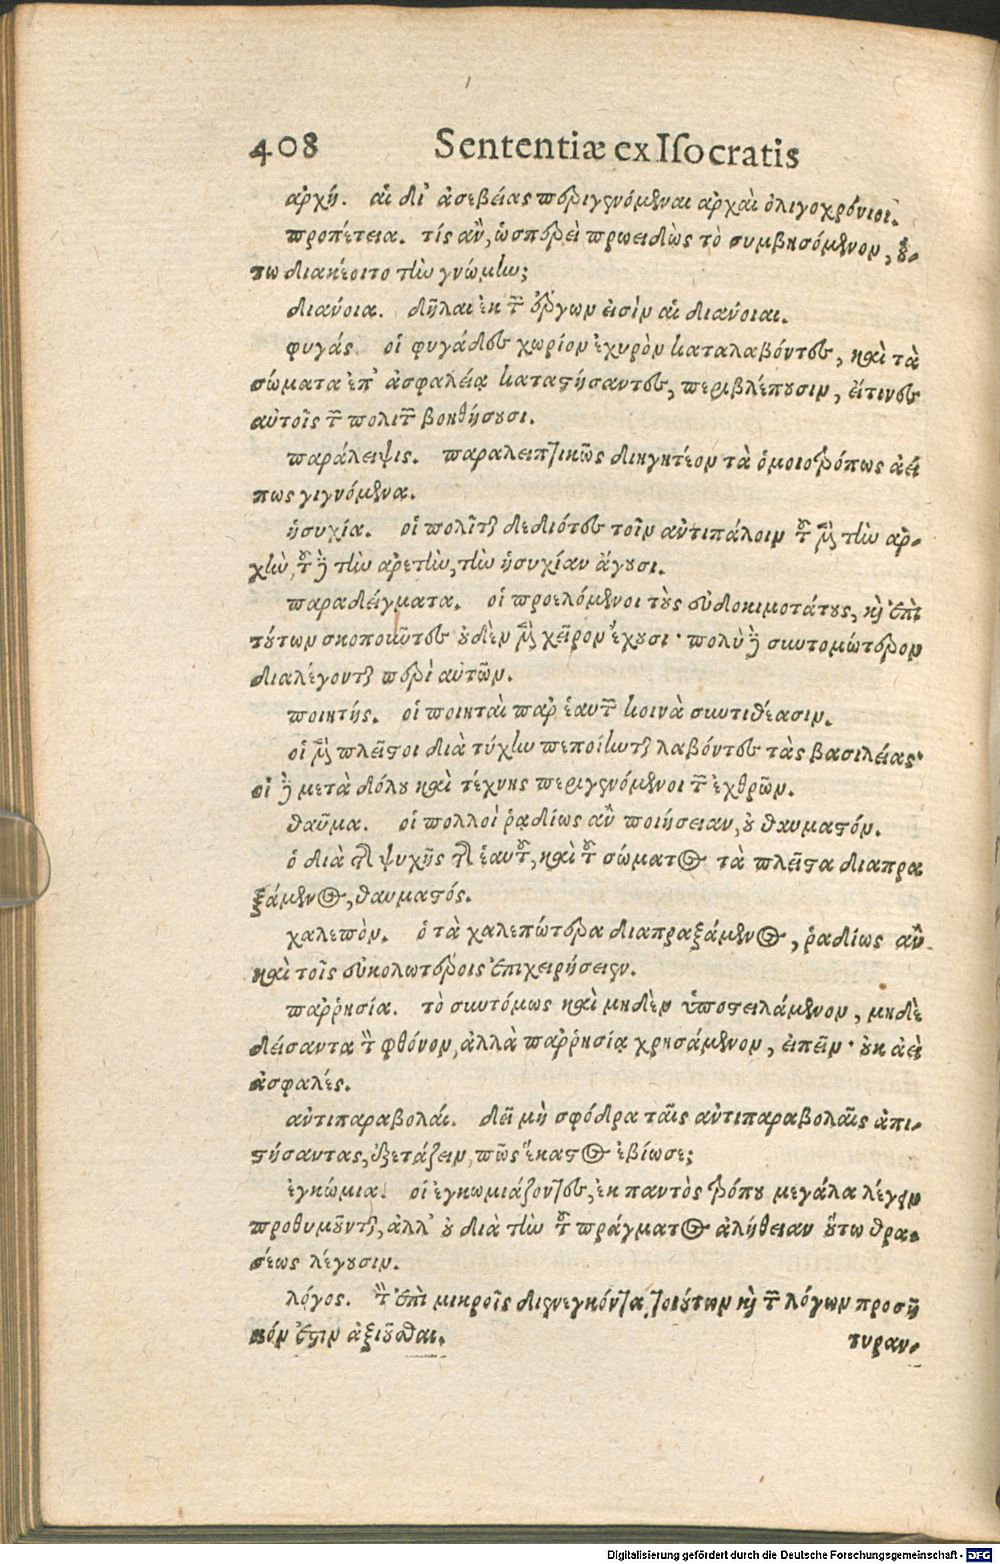 408 Sententiæ ex Iſocratis
αρχή. αἱ δι' ἀσεβείας περιγενόμεναι αρχαὶ ὀλιγοχρόνιοι.
προπέτεια. τίς ἂν, ὡσπερεὶ προειδὼς τὸ συμβησόμενον, ὅυ-
τω διακέοιτο τὴν γνώμην;
διανόια. δῆλαι ἐκ τῶν ἔργων εἰσὶν αἱ διανόιαι.
φυγάς. οἱ φυγάδες χωρίον ἐχυρὸν καταλαβόντες, καὶ τὰ
σώματα ἐπ' ἀσφαλείᾳ καταστήσαντες, περιβλέπουσιν, εἴτινες
αὐτοῖς τῶν πολιτῶν βοηθήσουσι.
παράλειψις. παραλειπτικῶς διηγητέον τὰ ὁμοιοτρόπως ἀεί
πως γιγνόμενα.
ἡσυχία. οἱ πολῖται δεδιότες τοῖν αὐτιπάλοιν τοῦ μὲν τὴν αρ-
χὴν, τοῦ δὲ τὴν αρετὴν, τὴν ἡσυχίαν ἄγουσι.
παραδείγματα. οἱ προελόμενοι τοὺς εὐδοκιμοτάτους, καὶ ἐπὶ
τούτων σκοποιῦτες οὐδὲν μὲν χεῖρον ἔχουσι· πολὺ δὲ συντομώτερον
διαλέγονται περὶ αὐτῶν.
ποιητής. οἱ ποιηταὶ παρ ἑαυτῶν κοινὰ συντιθέασιν.
οἱ μὲν πλεῖστοι διὰ τύχην πεποίηνται λαβόντες τὰς βασιλείας·
οἱ δὲ μετὰ δόλου καὶ τέχνης περιγενόμενοι τῶν ἐχθρῶν.
θαῦμα. οἱ πολλοὶ ῥᾳδίως ἂν ποιήσειαν, οὐ θαυμαστόν.
ὁ διὰ τῆς ψυχῆς τῆς ἑαυτοῦ, καὶ τοῦ σώματος τὰ πλεῖστα διαπρα
ξάμενος, θαυμαστός.
χαλεπὸν. ὁ τὰ χαλεπώτερα διαπραξάμενος, ῥαδίως ἂν
καὶ τοῖς εὐκολωτέροις ἐπιχειρήσειεν.
παῤῥησία. τὸ συντόμως καὶ μηδὲν ὑποστειλάμενον, μηδὲ
δείσαντα τὸν φθόνον, ἀλλὰ παῤῥησίᾳ χρησάμενον, εἰπεῖν· οὐκ ἀεὶ
ἀσφαλές.
αὐτιπαραβολαί. δεῖ μὴ σφόδρα ταῖς αὐτιπαραβολαῖς ἀπι-
στήσαντας, ἐξετάζειν, πῶς ἕκαστος ἐβίωσε;
ἐγκώμια. οἱ ἐγκωμιάζοντες, ἐκ παντὸς τρόπου μεγάλα λέγειν
προθυμοῦνται, ἀλλ' οὐ διὰ τὴν τοῦ πράγματος ἀλήθειαν οὕτω θρα-
σέως λέγουσιν.
λόγος. τὸν ἐπὶ μικροῖς διενεγκόντα, τοιούτων καὶ τῶν λόγων προσῆ
κόν ἐστιν ἀξιοῦσθαι.
τυραν-
Digitalisierung gefördert durch die Deutsche Forschungsgemeinschaft - DFG